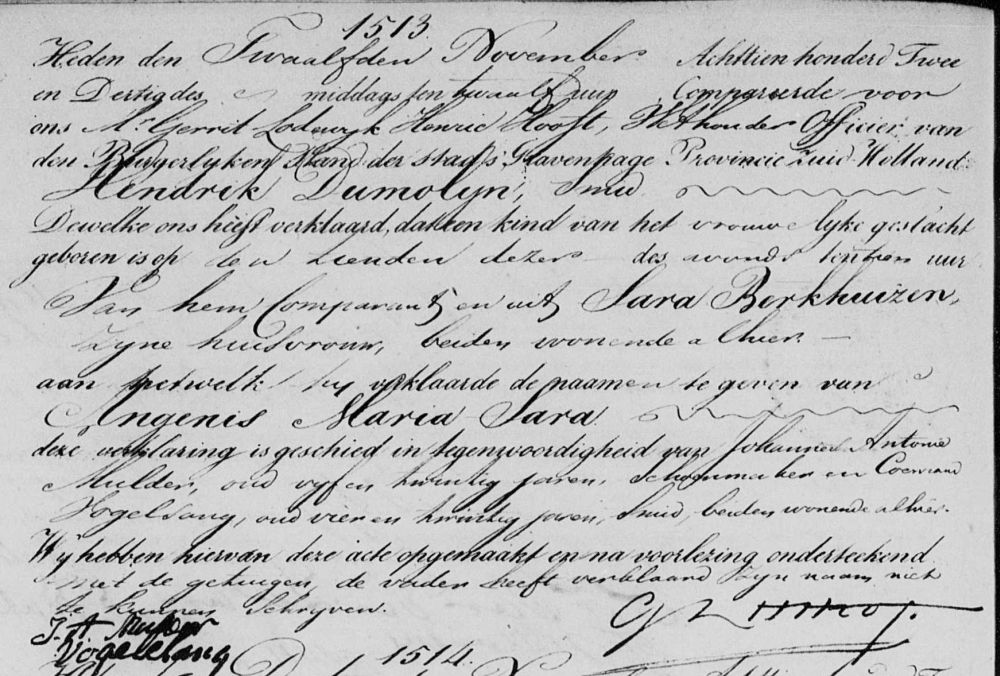 1513.
Heden den Twaalfden November Achttien honderd Twee
en Dertig des middags ten twaalf uur Compareerde voor
ons Mr. Gerrit Lodewyk Henric Hooft, Wethouder Officier van
den Burgerlyken Stand der stad 's Gravenhage Provincie Zuid-Holland
Hendrik Dumolijn, Smid
Dewelke ons heeft verklaard, dat een kind van het vrouwelyke geslacht
geboren is op den tienden dezer des avonds ten tien uur
Van hem Comparant en uit Sara Berkhuizen,
Zyne huisvrouw, beiden wonende alhier
aan hetwelk hy verklaarde de naamen te geven van
Angenis Maria Sara.
deze verklaring is geschied in tegenwoordigheid van Johannes Antonie
Mulder, oud vyf en twintig jaren, Schoenmaker en Coenraad
Vogelsang, oud vier en twintig jaren, Smid, beiden wonende alhier.
Wy hebben hiervan deze acte opgemaakt en na voorlezing onderteekend
met de getuigen, de vader heeft verklaard zyn naam niet
te kunnen Schryven.
J. A. Mulder
Vogelesang
1514.